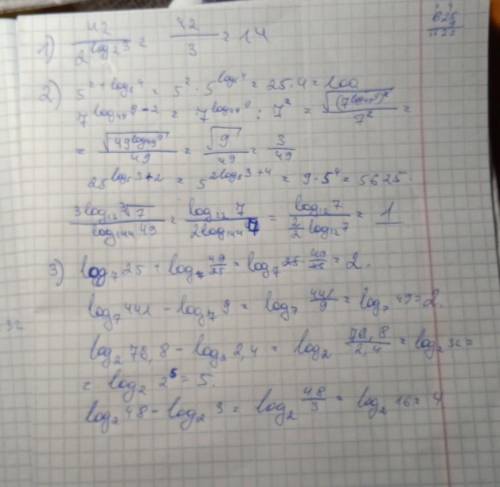 1) 42 / 2^(log₂3) = 42 / 3 = 14
625
2) 5^(2+log₅4) = 5² · 5^(log₅4) = 25 · 4 = 100
7^(log₄₉9 − 2) = 7^(log₄₉9) : 7² = √((7^(log₄₉9))²) / 7² =
= √(49^(log₄₉9)) / 49 = √9 / 49 = 3 / 49
25^(log₅3+2) = 5^(2log₅3+4) = 9 · 5⁴ = 5625.
3log₁₂∛7 / log₁₄₄49 = log₁₂7 / 2log₁₄₄7 = log₁₂7 / (2/2 log₁₂7) = 1
3) log₇25 + log₇ 49/25 = log₇ 25 · 49/25 = 2.
log₇441 − log₇9 = log₇ 441/9 = log₇49 = 2.
log₂76,8 − log₂2,4 = log₂ 76,8/2,4 = log₂32 =
= log₂2⁵ = 5.
log₂48 − log₂3 = log₂ 48/3 = log₂16 = 4